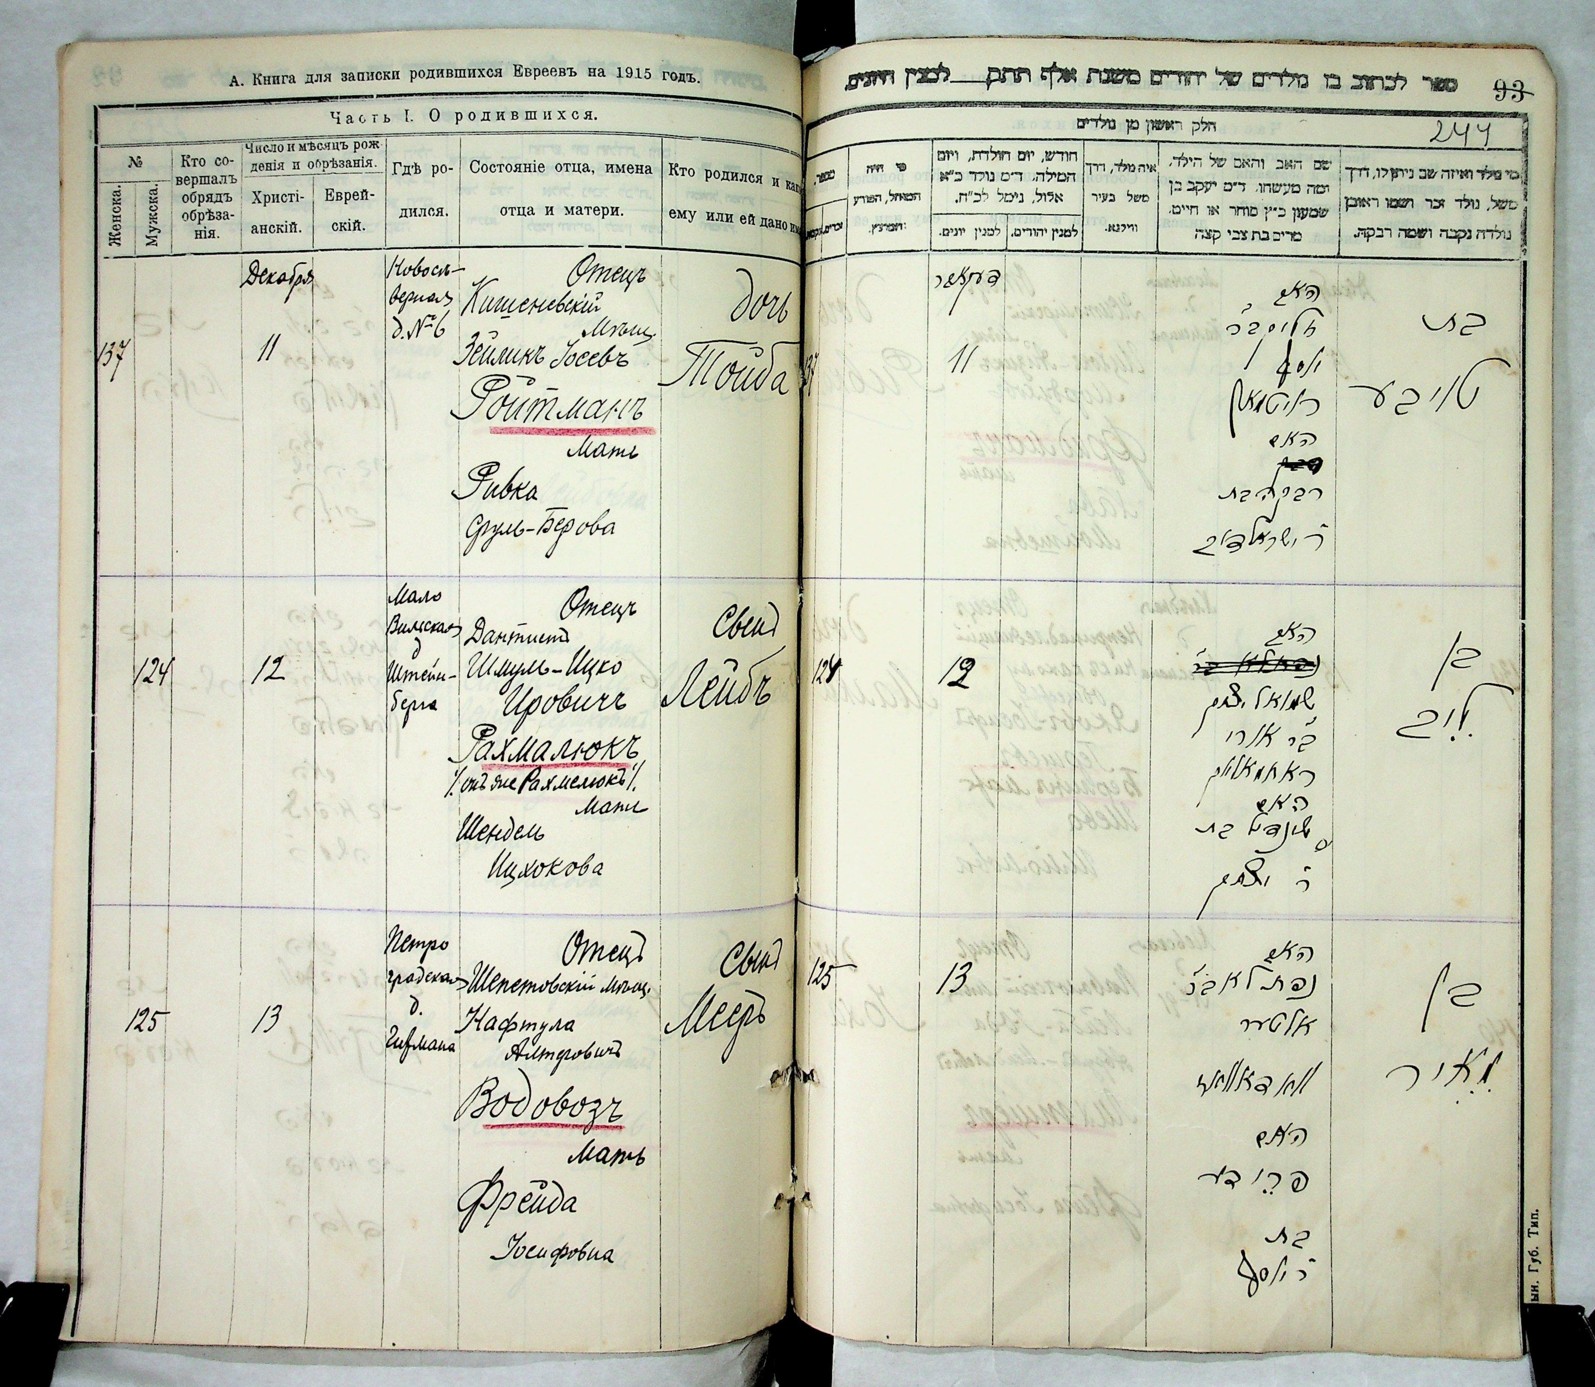 А. Книга для записки родившихся Евреевъ на 1915 годъ.
Часть I. О родившихся.
№
Женска.
Мужска.
Кто со-
вершалъ
обрядъ
обрѣза-
нія.
Число и мѣсяцъ рож
денія и обрѣзанія.
Христі-
анскій.
Еврей-
скій.
Гдѣ ро-
дился.
Состояніе отца, имена
отца и матери.
Кто родился и как
ему или ей дано
137
Декабря
11
д. № 6
Отецъ
Кишеневскій
Мѣщ.
Зейликъ Іосевъ
Ройтманъ
Мать
Ривка
Сруль-Берова
дочь
Тойба
124
12
Мало
Вильская
д
Штейн-
берга
Отецъ
Дантистъ
Шмуль-Ицко
Ировичъ
Рахмалюкъ
онъ же Рахмелюкъ
Мать
Шендель
Ицхокова
Сынъ
Лейбъ
125
13
Петро
градская
д.
Гифмана
Отецъ
Шепетовскій мѣщ.
Нафтула
Алтеровичъ
Водовозъ
Мать
Фрейда
Іосифовна
Сынъ
Мееръ
ספר לכתוב בו נולדים של יהודים משנת אלף תתק למנין היונים.
93
244
חלק ראשון מן נולדים
מי היה
חודש, יום הולדת, ויום
המילה. ד״מ נולד כ״א
אלול, נימל לכ״ח.
למנין יהודים.
למנין יונים.
איה נולד, דרך
משל בעיר
ווילנא.
שם האב והאם של הילד.
ומה מעשהו. ד״מ יעקב בן
שמעון כ״ץ סוחר או חייט.
מרים בת צבי קצה
מי נולד ואיזה שם ניתן לו, דרך
משל, נולד זכר ושמו ראובן
נולדה נקבה ושמה רבקה.
דעקאבר
11
האב
יוסף
רויטמאן
האם
רבקה בת
ר׳ ישראל דוב
בת
טויבע
124
12
האב
שמואל יצחק
בר אורי
ראחמאליוק
האם
שינדיל בת
ר׳ יצחק
בן
ליב
125
13
האב
נפתלא בר׳
אלטער
וואדאוואז
האם
פריידע
בת
ר׳ יוסף
בן
מאיר
ын. Губ. Тип.